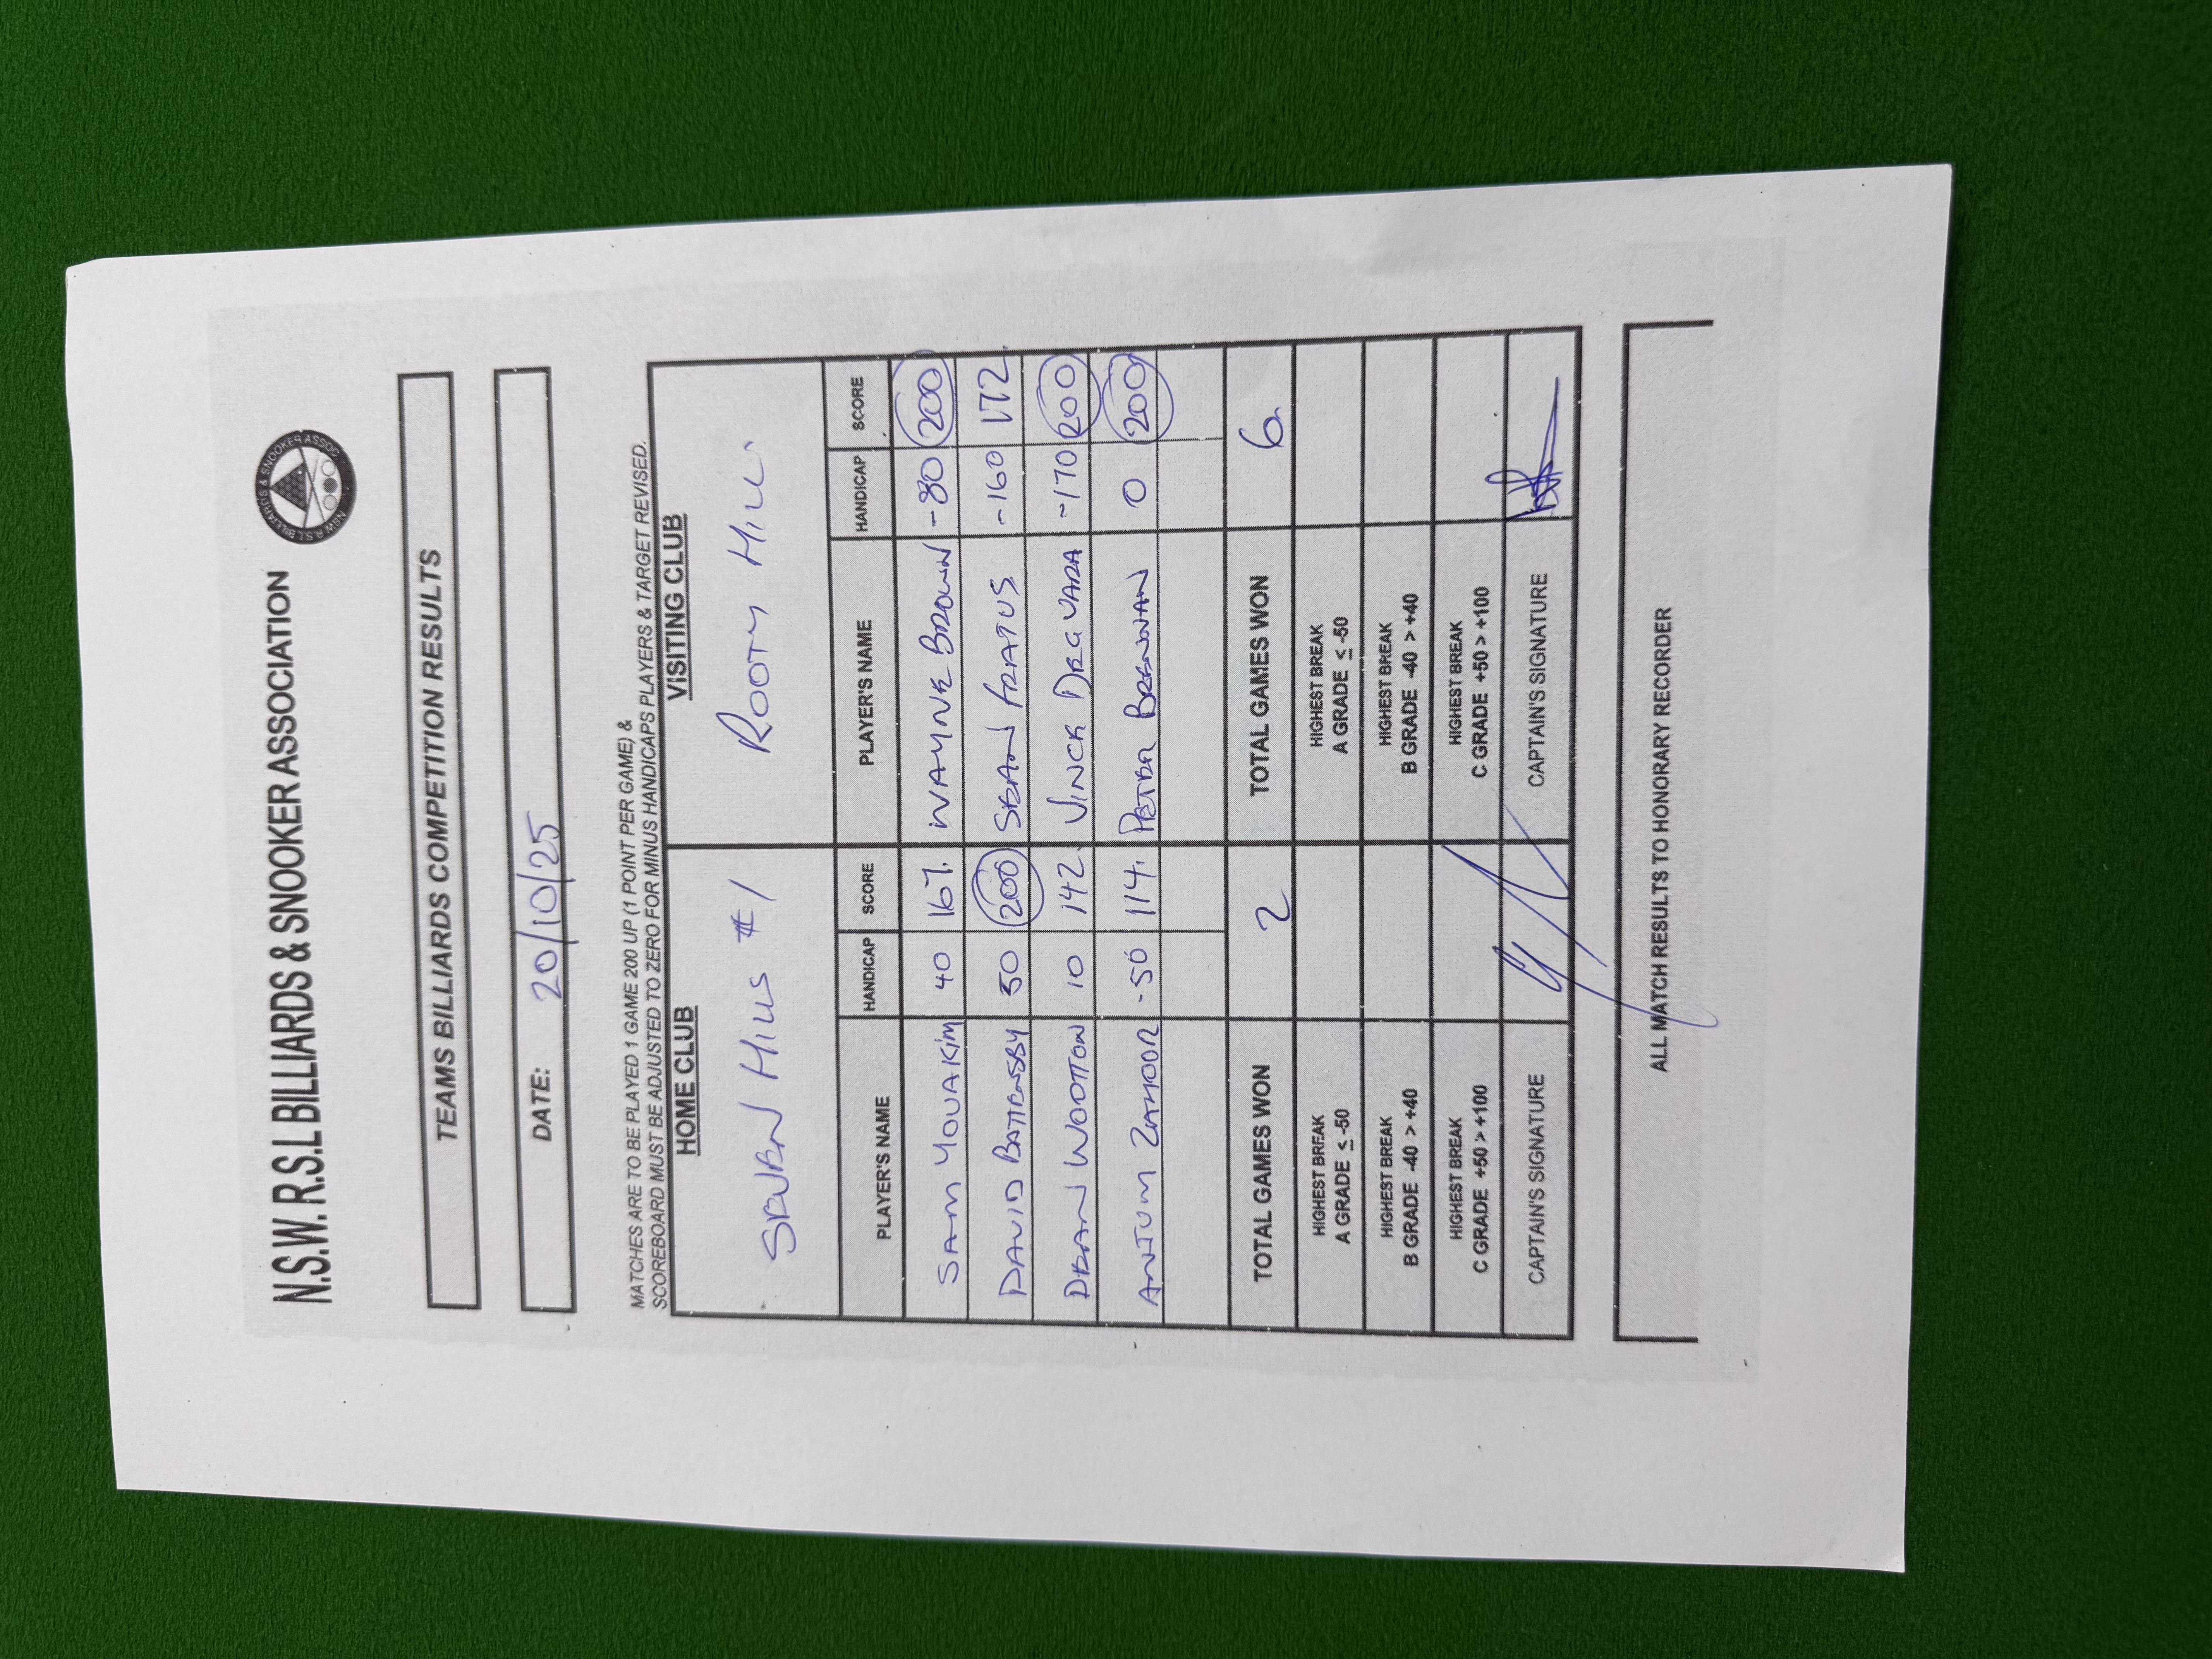 N.S.W. R.S.L BILLIARDS & SNOOKER ASSOCIATION
NSW R.S.L BILLIARDS & SNOOKER ASSOC
TEAMS BILLIARDS COMPETITION RESULTS
DATE: 20/10/25
MATCHES ARE TO BE PLAYED 1 GAME 200 UP (1 POINT PER GAME) &
SCOREBOARD MUST BE ADJUSTED TO ZERO FOR MINUS HANDICAPS PLAYERS & TARGET REVISED.
HOME CLUB VISITING CLUB
SEVEN HILLS #1 ROOTY HILL
PLAYER'S NAME HANDICAP SCORE PLAYER'S NAME HANDICAP SCORE
SAM YOUAKIM 40 167. WAYNE BROWN -80 200
DAVID BATTENSBY 50 200 SEAN FRATUS -160 172
DEAN WOOTTON 10 142. VINCE -170 200
ANJUM ZAHOOR -50 114. PETER BRENNAN 0 200
TOTAL GAMES WON 2 TOTAL GAMES WON 6
HIGHEST BREAK HIGHEST BREAK
A GRADE ≤ -50 A GRADE ≤ -50
HIGHEST BREAK HIGHEST BREAK
B GRADE -40 > +40 B GRADE -40 > +40
HIGHEST BREAK HIGHEST BREAK
C GRADE +50 > +100 C GRADE +50 > +100
CAPTAIN'S SIGNATURE CAPTAIN'S SIGNATURE
ALL MATCH RESULTS TO HONORARY RECORDER